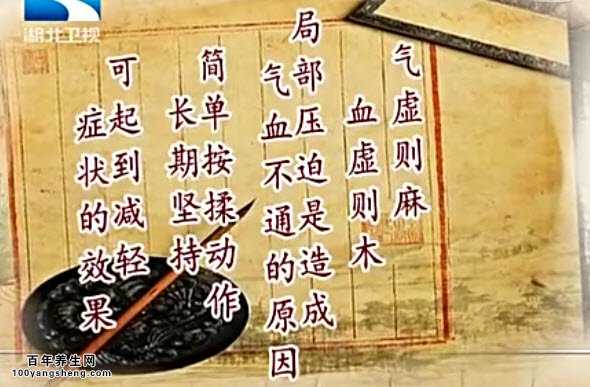 湖北卫视
气虚则麻
血虚则木
局部压迫是造成
气血不通的原因
简单按揉动作
长期坚持
可起到减轻
症状的效果
百年养生网
100yangsheng.com